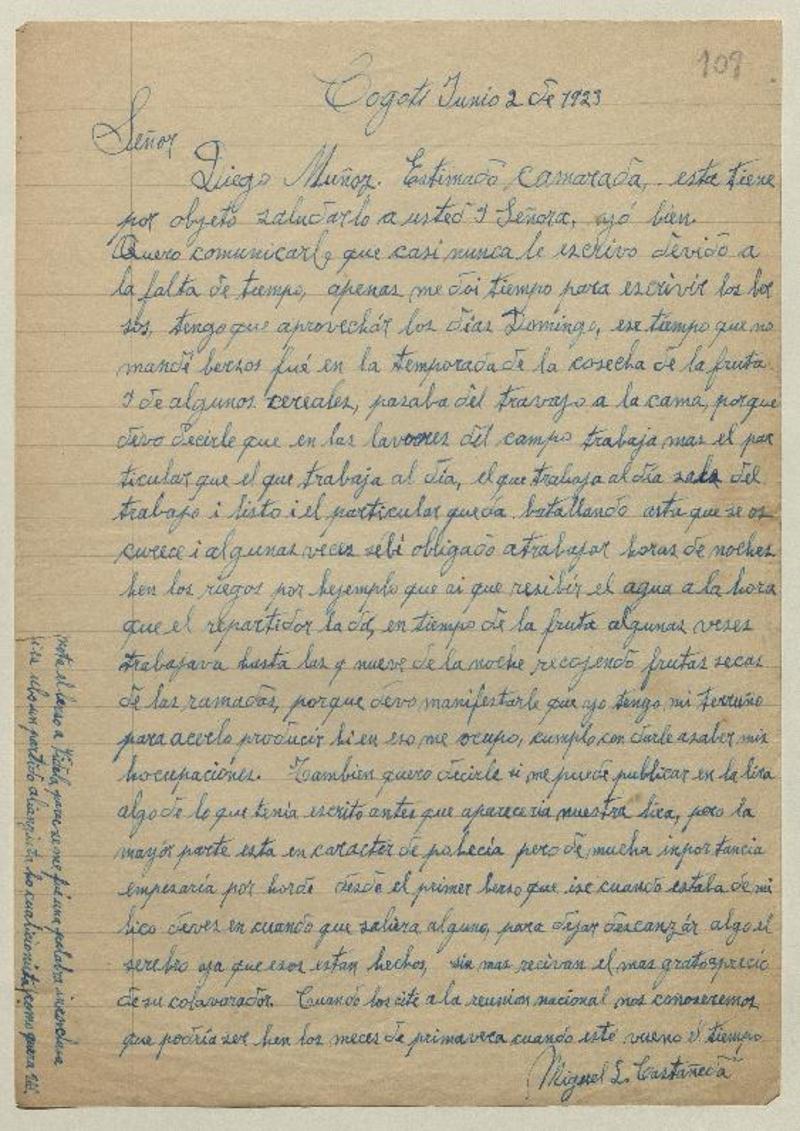 109
Cogotí Junio 2 de 1923
Señor
Diego Muñoz. Estimado camarada, esta tiene
por objeto saludarlo a usted I Señora, ajó bien.
Quero comunicarle que casi nunca le escrivo devido a
la falta de tiempo, apenas me doi tiempo para escrivir los ber
sos, tengo que aprovechár los días Domingo, ese tiempo que no
mandé bersos fué en la temporada de la cosecha de la fruta
I de algunos cereales, pasaba del travajo a la cama, porque
devo decirle que en las lavores del campo trabaja mas el par
ticular que el que trabaja al día, el que trabaja al día sale del
trabajo i listo i el particular queda batallando asta que se os
curece i algunas veces sebé obligado a trabajar horas de noches
hen los riegos por hejemplo que ai que resibir el agua a la hora
que el repartidor la da, en tiempo de la fruta algunas veses
trabajava hasta las 9 nueve de la noche recojendo frutas secas
de las ramadas, porque devo manifestarle que ajo tengo mi terruño
para acerlo producir hi en eso me ocupo, cumplo con darle a saber mis
hocupaciones. Tambien quero decirle si me puede publicar en la lira
algo de lo que tenía escrito antes que apareceria nuestra lira, pero la
mayor parte esta en caracter de pohecía pero de mucha inportancia
empesaría por horde desde el primer berso que ise cuando estaba de mi
hico deves en cuando que saliera alguno, para dejar descanzár algo el
serebro aja que esos estan hechos, sin mas recivan el mas grato aprecio
de su colavorador. Cuando los cite a la reunion nacional nos conoseremos
que podría ser hen los meces de primavera cuando esté vueno el tiempo
Miguel L. Castañeda
nota el berso a Fidel, parese me fué una palabra inconclusa
i se ubo un partido aliancista ho cualicionista, como quera